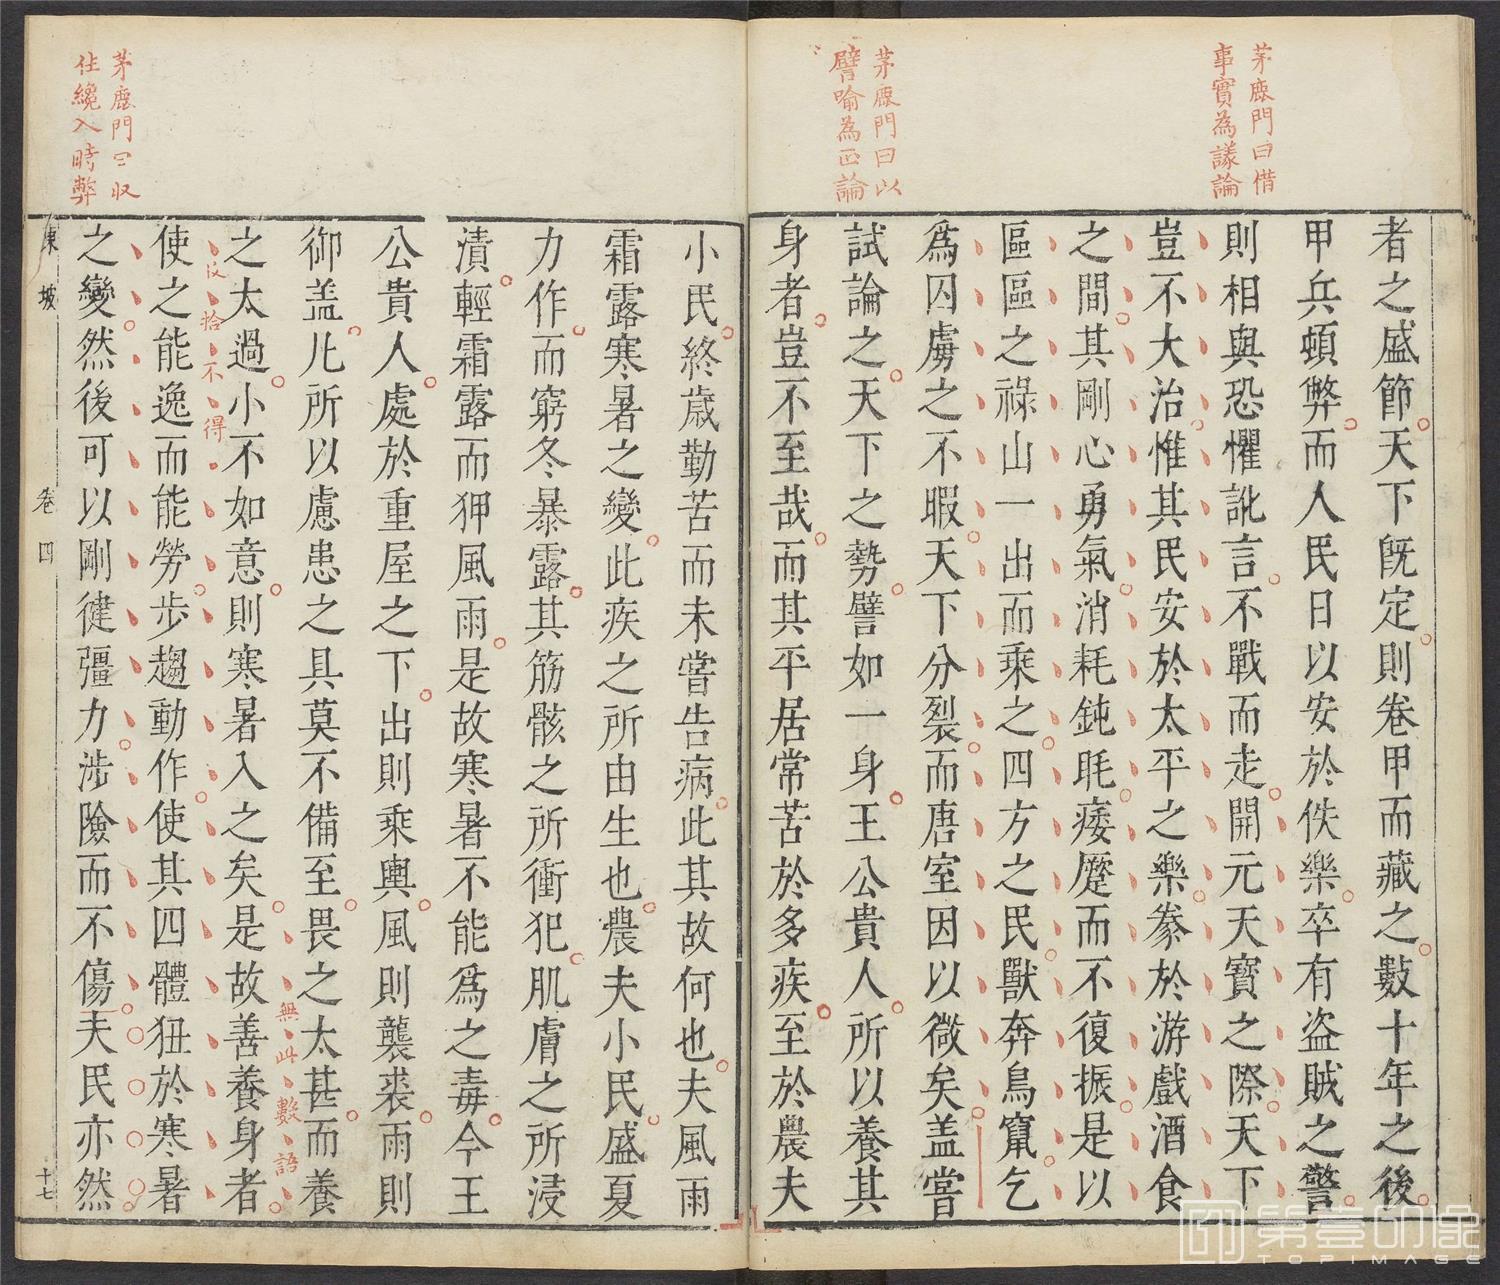 茅鹿門曰借
事實為議論
茅鹿門曰以
譬喻為正論
者之盛節天下既定則卷甲而藏之數十年之後
甲兵頓弊而人民日以安於佚樂卒有盗賊之警
則相與恐懼訛言不戰而走開元天寳之際天下
豈不大治惟其民安於太平之樂豢於游戲酒食
之間其剛心勇氣消耗鈍眊痿蹷而不復振是以
區區之祿山一出而乘之四方之民獸奔鳥竄乞
爲囚虜之不暇天下分裂而唐室因以微矣盖嘗
試論之天下之勢譬如一身王公貴人所以養其
身者豈不至哉而其平居常苦於多疾至於農夫
茅鹿門曰収
住纔入時弊
小民終歲勤苦而未嘗告病此其故何也夫風雨
霜露寒暑之變此疾之所由生也農夫小民盛夏
力作而窮冬暴露其筋骸之所衝犯肌膚之所浸
漬輕霜露而狎風雨是故寒暑不能爲之毒今王
公貴人處於重屋之下出則乘輿風則襲裘雨則
御盖凡所以慮患之具莫不備至畏之太甚而養
無此數語
之太過小不如意則寒暑入之矣是故善養身者
收拾不得
使之能逸而能勞步趨動作使其四體狃於寒暑
之變然後可以剛徤彊力涉險而不傷夫民亦然
東坡 卷四 十七
第壹印像
TOPIMAGE